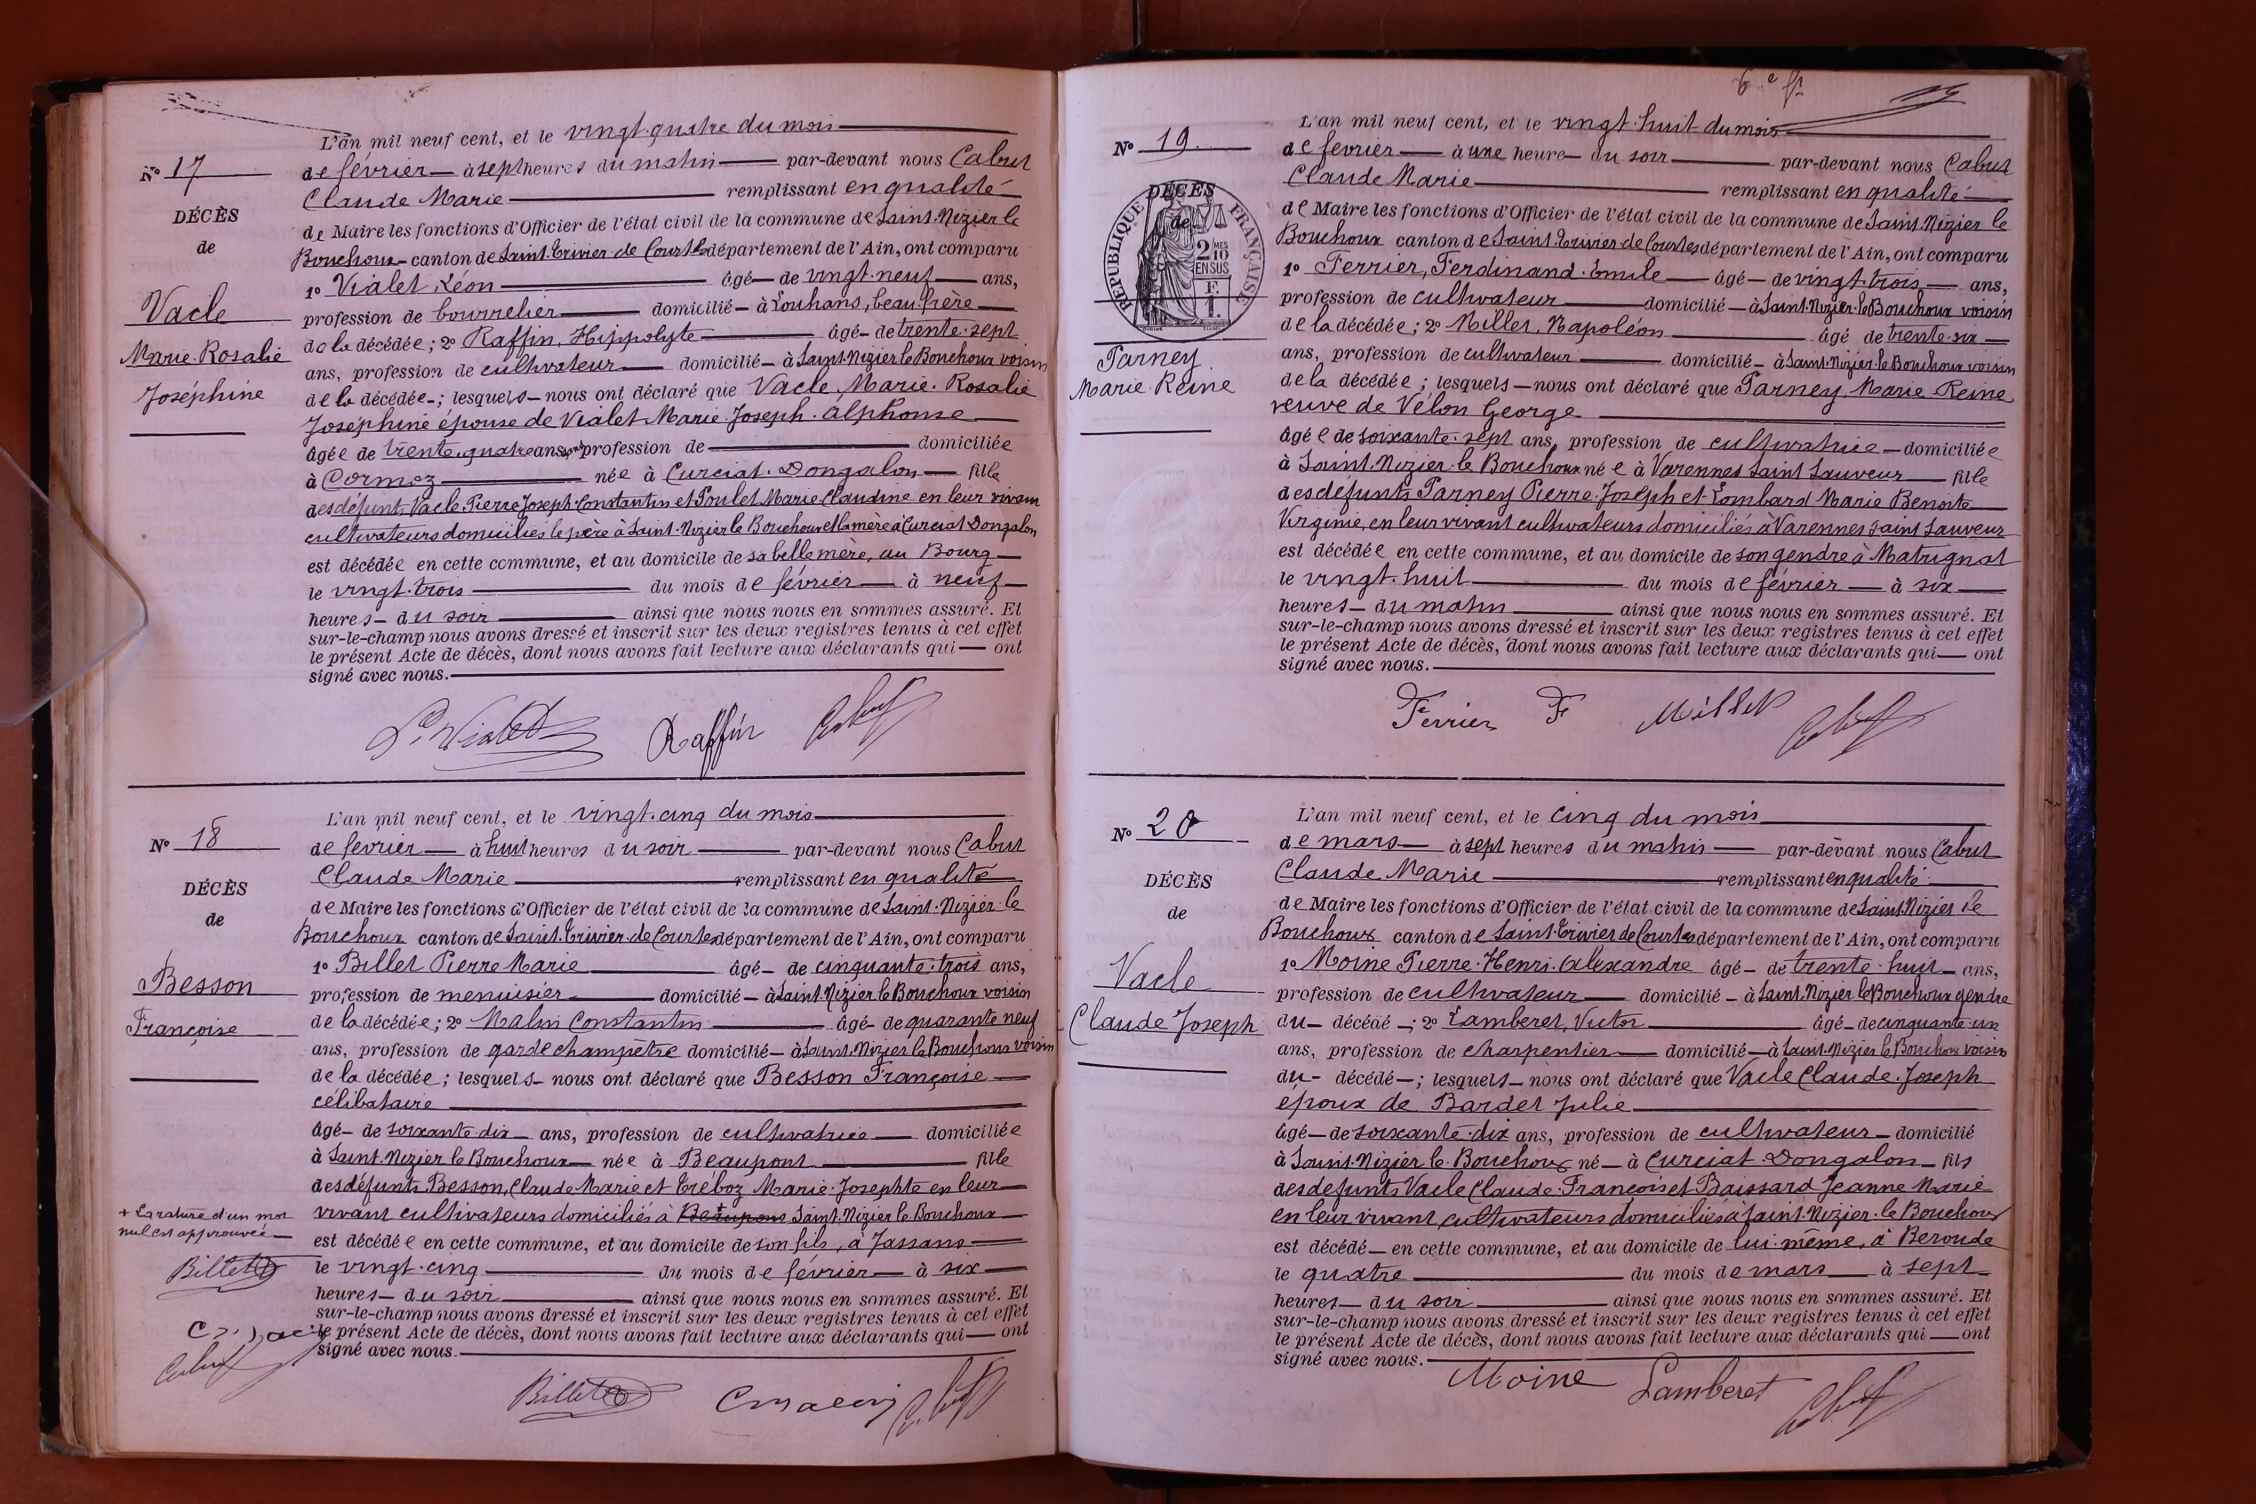 L'an mil neuf cent, et le vingt-quatre du mois
Nº 17
de février à sept heures du matin par-devant nous Cabut
Claude Marie remplissant en qualité
DÉCÈS
de
de Maire les fonctions d'Officier de l'état civil de la commune de Saint-Nizier le
Bouchoux canton de Saint-Trivier de Courtes département de l'Ain, ont comparu
1º Vialet Léon âgé de vingt-neuf ans,
Vacle
Marie-Rosalie
Joséphine
profession de bourrelier domicilié à Louhans, beau frère
de la décédée; 2º Raffin, Hippolyte âgé de trente-sept
ans, profession de cultivateur domicilié à Saint-Nizier le Bouchoux voisin
de la décédée; lesquels nous ont déclaré que Vacle, Marie-Rosalie
Joséphine épouse de Vialet Marie-Joseph-Alphonse
âgée de trente-quatre ans, profession de domiciliée
à Cormoz née à Curciat-Dongalon fille
des défunts Vacle Pierre Joseph Constantin et Poulet Marie Claudine en leur vivant
cultivateurs domiciliés le père à Saint-Nizier le Bouchoux et la mère à Curciat Dongalon
est décédée en cette commune, et au domicile de sa belle mère, au Bourg
le vingt-trois du mois de février à neuf
heures du soir ainsi que nous nous en sommes assuré. Et
sur-le-champ nous avons dressé et inscrit sur les deux registres tenus à cet effet
le présent Acte de décès, dont nous avons fait lecture aux déclarants qui ont
signé avec nous.
L. Vialet Raffin Cabut
L'an mil neuf cent, et le vingt-cinq du mois
Nº 18
de février à huit heures du soir par-devant nous Cabut
Claude Marie remplissant en qualité
DÉCÈS
de
de Maire les fonctions d'Officier de l'état civil de la commune de Saint-Nizier le
Bouchoux canton de Saint-Trivier de Courtes département de l'Ain, ont comparu
1º Billet Pierre Marie âgé de cinquante-trois ans,
Besson
Françoise
profession de menuisier domicilié à Saint Nizier le Bouchoux voisin
de la décédée; 2º Malin Constantin âgé de quarante neuf
ans, profession de garde champêtre domicilié à Saint-Nizier le Bouchoux voisin
de la décédée; lesquels nous ont déclaré que Besson Françoise
célibataire
âgé de soixante-dix ans, profession de cultivatrice domiciliée
à Saint-Nizier le Bouchoux née à Beaupont fille
des défunts Besson, Claude Marie et Tréboz Marie-Josephte en leur
vivant cultivateurs domiciliés à Beaupont Saint-Nizier le Bouchoux
+ La rature d'un mot
nul est approuvée
Billet
C. Malin
Cabut
est décédée en cette commune, et au domicile de son fils, à Jassans
le vingt-cinq du mois de février à six
heures du soir ainsi que nous nous en sommes assuré. Et
sur-le-champ nous avons dressé et inscrit sur les deux registres tenus à cet effet
le présent Acte de décès, dont nous avons fait lecture aux déclarants qui ont
signé avec nous.
Billet C Malin Cabut
6e ft
L'an mil neuf cent, et le vingt-huit du mois
Nº 19
de février à une heure du soir par-devant nous Cabut
Claude Marie remplissant en qualité
DÉCÈS
de
RÉPUBLIQUE FRANÇAISE
2 MES
10
EN SUS
F.
1.
de Maire les fonctions d'Officier de l'état civil de la commune de Saint-Nizier le
Bouchoux canton de Saint-Trivier de Courtes département de l'Ain, ont comparu
1º Ferrier, Ferdinand-Emile âgé de vingt-trois ans,
profession de cultivateur domicilié à Saint-Nizier-le Bouchoux voisin
de la décédée; 2º Millet, Napoléon âgé de trente-six
Parney
Marie Reine
ans, profession de cultivateur domicilié à Saint-Nizier le Bouchoux voisin
de la décédée; lesquels nous ont déclaré que Parney, Marie Reine
veuve de Vélon George
âgée de soixante-sept ans, profession de cultivatrice domiciliée
à Saint-Nizier-le Bouchoux née à Varennes Saint Sauveur fille
des défunts Parney Pierre-Joseph et Lombard Marie Benoite
Virginie, en leur vivant cultivateurs domiciliés à Varennes saint Sauveur
est décédée en cette commune, et au domicile de son gendre à Matrignat
le vingt-huit du mois de février à six
heures du matin ainsi que nous nous en sommes assuré. Et
sur-le-champ nous avons dressé et inscrit sur les deux registres tenus à cet effet
le présent Acte de décès, dont nous avons fait lecture aux déclarants qui ont
signé avec nous.
Ferrier F Millet Cabut
L'an mil neuf cent, et le cinq du mois
Nº 20
de mars à sept heures du matin par-devant nous Cabut
Claude Marie remplissant en qualité
DÉCÈS
de
de Maire les fonctions d'Officier de l'état civil de la commune de Saint Nizier le
Bouchoux canton de Saint-Trivier de Courtes département de l'Ain, ont comparu
1º Moine Pierre-Henri-Alexandre âgé de trente-huit ans,
Vacle
Claude Joseph
profession de cultivateur domicilié à Saint-Nizier le Bouchoux gendre
du décédé; 2º Lamberet, Victor âgé de cinquante-un
ans, profession de charpentier domicilié à Saint-Nizier le Bouchoux voisin
du décédé; lesquels nous ont déclaré que Vacle Claude-Joseph
époux de Bardet Julie
âgé de soixante-dix ans, profession de cultivateur domicilié
à Saint-Nizier le Bouchoux né à Curciat-Dongalon fils
des défunts Vacle Claude-François et Baissard Jeanne Marie
en leur vivant, cultivateurs domiciliés à Saint-Nizier-le Bouchoux
est décédé en cette commune, et au domicile de lui-même, à Beroude
le quatre du mois de mars à sept
heures du soir ainsi que nous nous en sommes assuré. Et
sur-le-champ nous avons dressé et inscrit sur les deux registres tenus à cet effet
le présent Acte de décès, dont nous avons fait lecture aux déclarants qui ont
signé avec nous.
Moine Lamberet Cabut